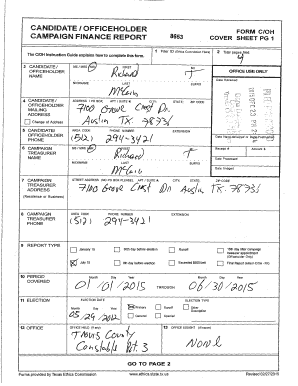 CANDIDATE / OFFICEHOLDER
CAMPAIGN FINANCE REPORT
8663
FORM C/OH
COVER SHEET PG 1
The C/OH Instruction Guide explains how to complete this form.
1 Filer ID (Ethics Commission Filers)
2 Total pages filed:
4
3 CANDIDATE /
OFFICEHOLDER
NAME
MS / MRS / MR
FIRST
MI
Richard
T
NICKNAME
LAST
SUFFIX
McCain
OFFICE USE ONLY
Date Received
4 CANDIDATE /
OFFICEHOLDER
MAILING
ADDRESS
Change of Address
ADDRESS / PO BOX;
APT / SUITE #;
CITY;
STATE;
ZIP CODE
7100 Grove Crest Dr
Austin TX. 78736
5 CANDIDATE/
OFFICEHOLDER
PHONE
AREA CODE
PHONE NUMBER
EXTENSION
(512) 294-3421
Date Hand-delivered or Date Postmarked
6 CAMPAIGN
TREASURER
NAME
MS / MRS / MR
FIRST
MI
Richard
T
NICKNAME
LAST
SUFFIX
McCain
Receipt #
Amount $
Date Processed
Date Imaged
7 CAMPAIGN
TREASURER
ADDRESS
(Residence or Business)
STREET ADDRESS (NO PO BOX PLEASE);
APT / SUITE #;
CITY;
STATE;
ZIP CODE
7100 Grove Crest Dr Austin TX. 78736
8 CAMPAIGN
TREASURER
PHONE
AREA CODE
PHONE NUMBER
EXTENSION
(512) 294-3421
9 REPORT TYPE
January 15
30th day before election
Runoff
15th day after campaign
treasurer appointment
(Officeholder Only)
July 15
8th day before election
Exceeded $500 limit
Final Report (Attach C/OH - FR)
10 PERIOD
COVERED
Month
Day
Year
01/01/2015
THROUGH
Month
Day
Year
06/30/2015
11 ELECTION
ELECTION DATE
Month
Day
Year
05/29/2012
ELECTION TYPE
Primary
Runoff
Other
Description
General
Special
12 OFFICE
OFFICE HELD (if any)
Travis County
Constable Pct. 3
13 OFFICE SOUGHT (if known)
None
GO TO PAGE 2
Forms provided by Texas Ethics Commission
www.ethics.state.tx.us